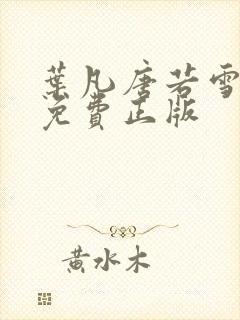 葉凡唐若雪
免費正版
黃水木